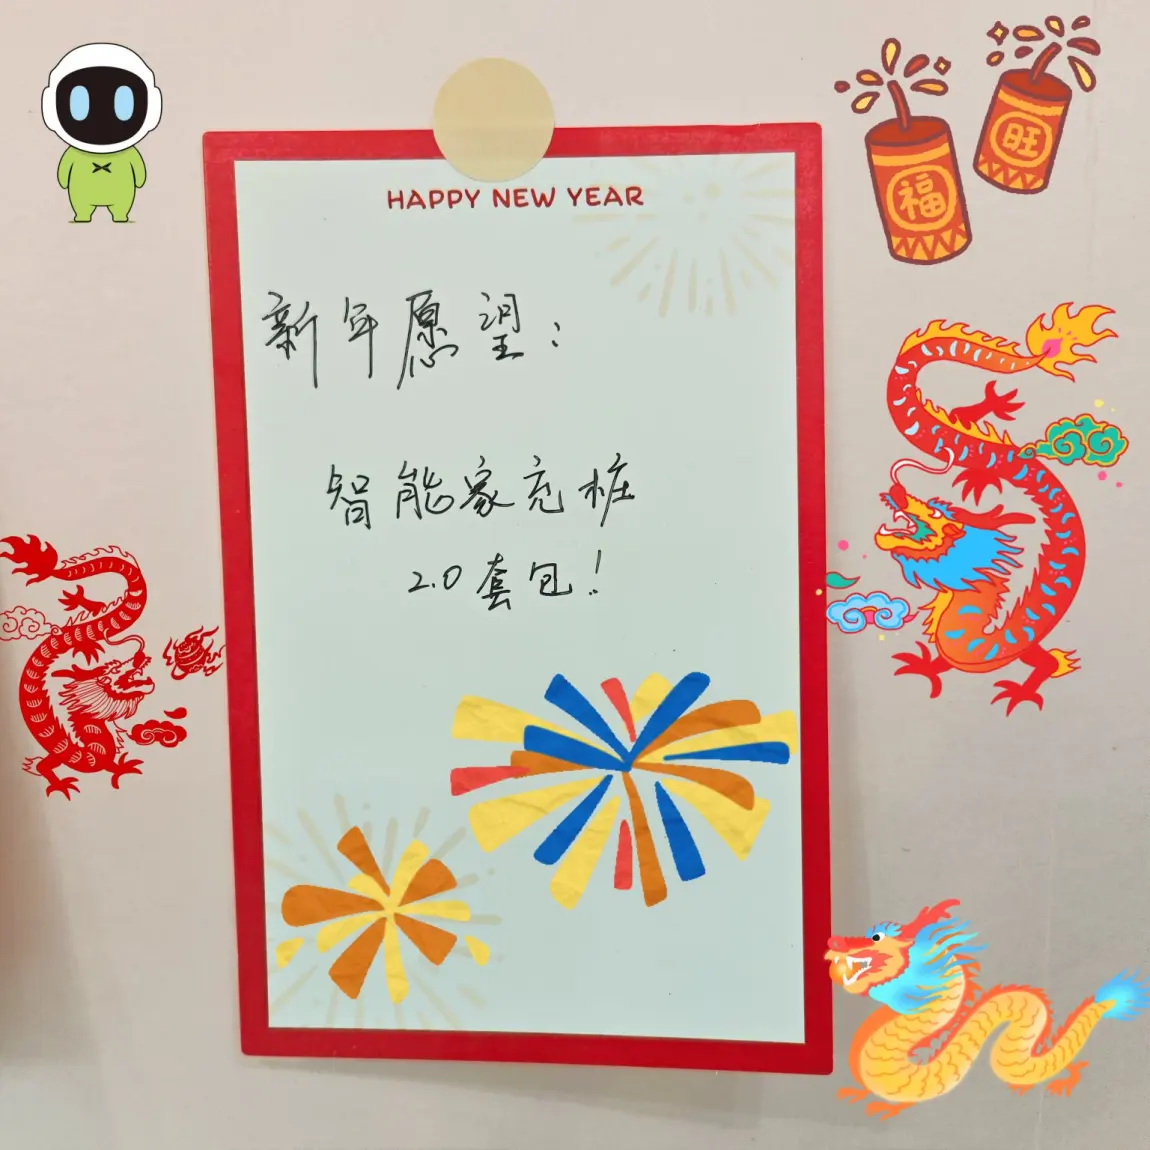 HAPPY NEW YEAR
福
旺
新年愿望：
智能家充桩
2.0套包！